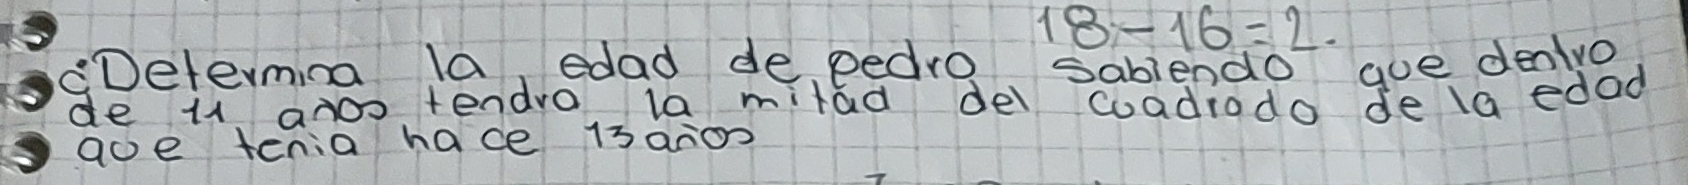 18-16=2.
¿Determina la edad de pedro sabiendo que dentro
de 11 años tendra la mitad del cuadrado de la edad
que tenia hace 13 años